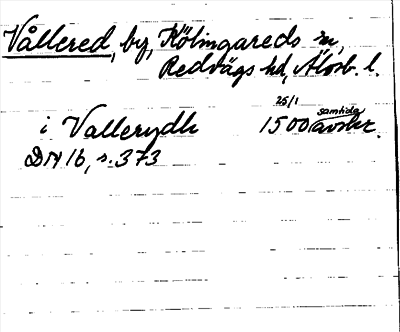 Vållered, by, Kölingareds sn,
Redvägs hd, Älvsb. l.
25/1
i Vallerydh 1500 samtida avskr.
DN 16, s. 373